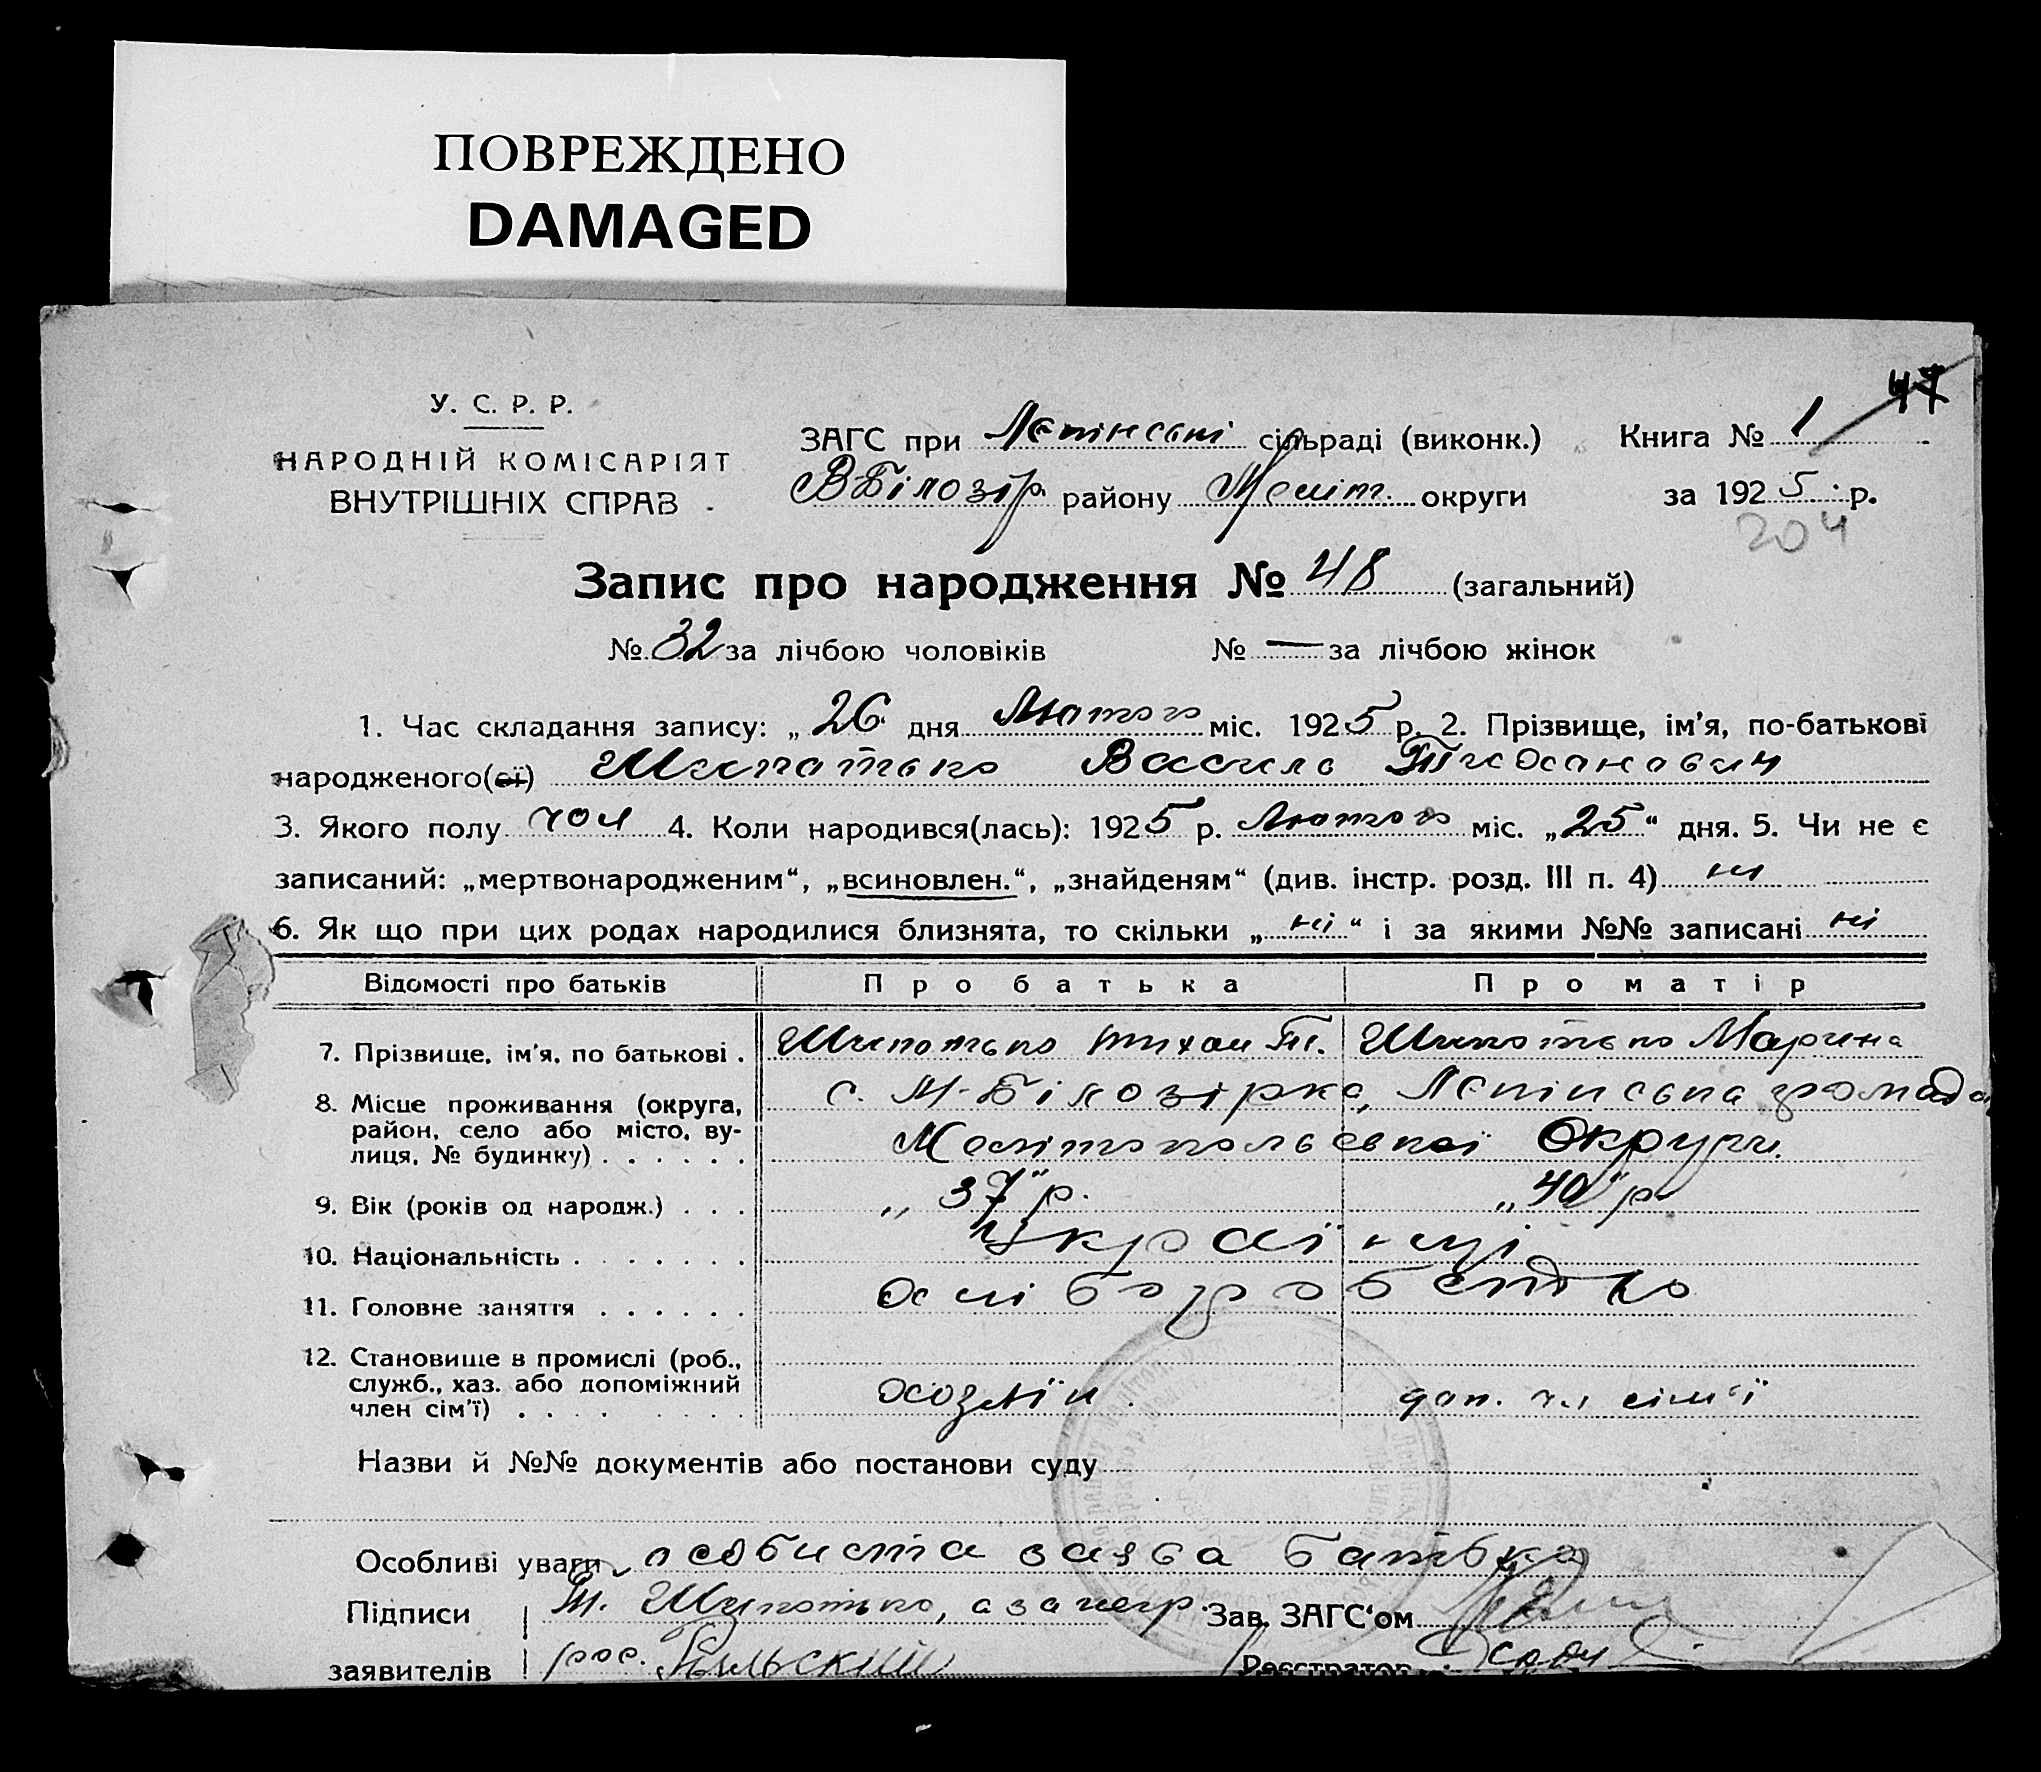 ПОВРЕЖДЕНО
DAMAGED
47
У. С. Р. Р.
НАРОДНІЙ КОМІСАРІЯТ
ВНУТРІШНІХ СПРАВ
ЗАГС при Лєнінські сільраді (виконк.) Книга № 1
ВБілозір. району Меліт. округи за 1925 р.
204
Запис про народження № 48 (загальний)
№ 32 за лічбою чоловіків № — за лічбою жінок
1. Час складання запису: „ 26 дня Лютого міс. 1925 р. 2. Прізвище, ім'я, по-батькові
народженого(єї) Шипотько Василь
3. Якого полу чол 4. Коли народився(лась): 1925 р. Лютого міс. „25“ дня. 5. Чи не є
записаний: „мертвонародженим“, „всиновлен.“, „знайденям“ (див. інстр. розд. III п. 4) ні
6. Як що при цих родах народилися близнята, то скільки „ ні “ і за якими №№ записані ні
Відомості про батьків Про батька Про матір
7. Прізвище, ім'я, по батькові . Шипотько Тихон Т. Шипотько Марина
8. Місце проживання (округа, с. М-Білозірка, Лєнінська громада
район, село або місто, ву-
лиця, № будинку) . . . . . . Мелітопольської Округи.
9. Вік (років од народж.) . . . „ 37" р. „40" р.
10. Національність . . . . . . . Українці
11. Головне заняття . . . . . . хліборобство
12. Становище в промислі (роб.,
служб., хаз. або допоміжний хозяїн. доп. чл сім'ї
член сім'ї) . . . . . . . .
Назви й №№ документів або постанови суду
Особливі уваги особиста заява батька
Підписи Т. Шипотько, а за негр. Зав. ЗАГС'ом
заявителів рос. Реєстратор